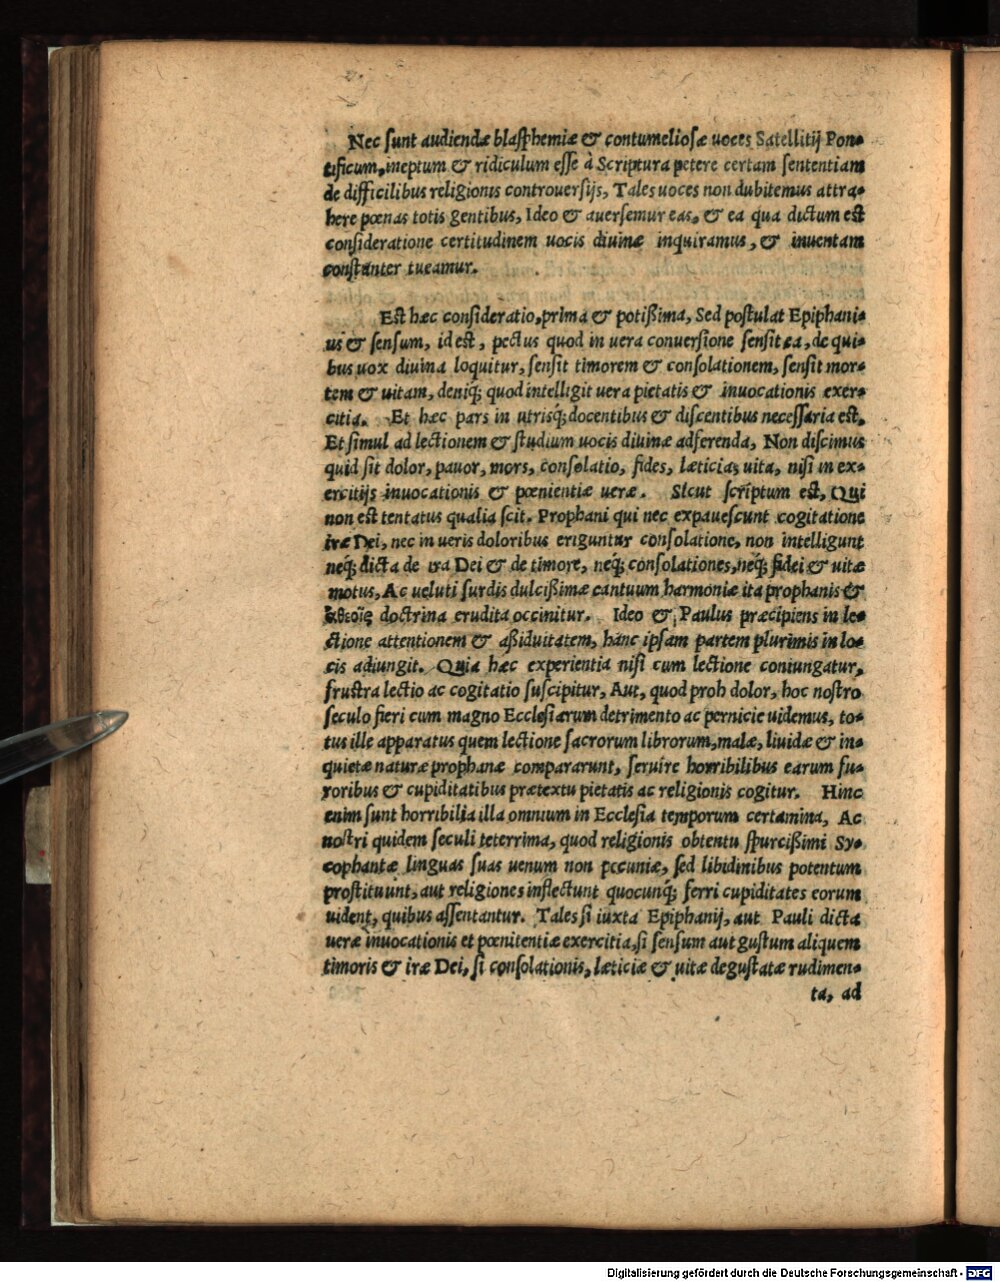 Nec sunt audiendæ blasphemiæ & contumeliosæ uoces Satellitij Pon-
tificum, ineptum & ridiculum esse à Scriptura petere certam sententiam
de difficilibus religionis controuersijs, Tales uoces non dubitemus attra-
here pœnas totis gentibus, Ideo & auersemur eas, & ea qua dictum est
consideratione certitudinem uocis diuinæ inquiramus, & inuentam
constanter tueamur.
Est hæc consideratio, prima & potißima, Sed postulat Epiphani-
us & sensum, id est, pectus quod in uera conuersione sensit ea, de qui-
bus uox diuina loquitur, sensit timorem & consolationem, sensit mor-
tem & uitam, deniq; quod intelligit uera pietatis & inuocationis exer-
citia. Et hæc pars in utrisq; docentibus & discentibus necessaria est.
Et simul ad lectionem & studium uocis diuinæ adferenda, Non discimus
quid sit dolor, pauor, mors, consolatio, fides, læticia, uita, nisi in ex-
ercitijs inuocationis & pœnientiæ ueræ. Sicut scriptum est, Qui
non est tentatus qualia scit. Prophani qui nec expauescunt cogitatione
iræ Dei, nec in ueris doloribus eriguntur consolatione, non intelligunt
neq; dicta de ira Dei & de timore, neq; consolationes, neq; fidei & uitæ
motus, Ac ueluti surdis dulcißimæ cantuum harmoniæ ita prophanis &
ἀθεοῖς doctrina erudita occinitur. Ideo & Paulus præcipiens in le-
ctione attentionem & aßiduitatem, hanc ipsam partem plurimis in lo-
cis adiungit. Quia hæc experientia nisi cum lectione coniungatur,
frustra lectio ac cogitatio suscipitur, Aut, quod proh dolor, hoc nostro
seculo fieri cum magno Ecclesiarum detrimento ac pernicie uidemus, to-
tus ille apparatus quem lectione sacrorum librorum, malæ, liuidæ & in-
quietæ naturæ prophanæ compararunt, seruire horribilibus earum fu-
roribus & cupiditatibus prætextu pietatis ac religionis cogitur. Hinc
enim sunt horribilia illa omnium in Ecclesia temporum certamina, Ac
nostri quidem seculi teterrima, quod religionis obtentu spurcißimi Sy-
cophantæ linguas suas uenum non pecuniæ, sed libidinibus potentum
prostituunt, aut religiones inflectunt quocunq; ferri cupiditates eorum
uident, quibus assentantur. Tales si iuxta Epiphanij, aut Pauli dicta
ueræ inuocationis et pœnitentiæ exercitia, si sensum aut gustum aliquem
timoris & iræ Dei, si consolationis, læticiæ & uitæ degustatæ rudimen-
ta, ad
Digitalisierung gefördert durch die Deutsche Forschungsgemeinschaft - DFG